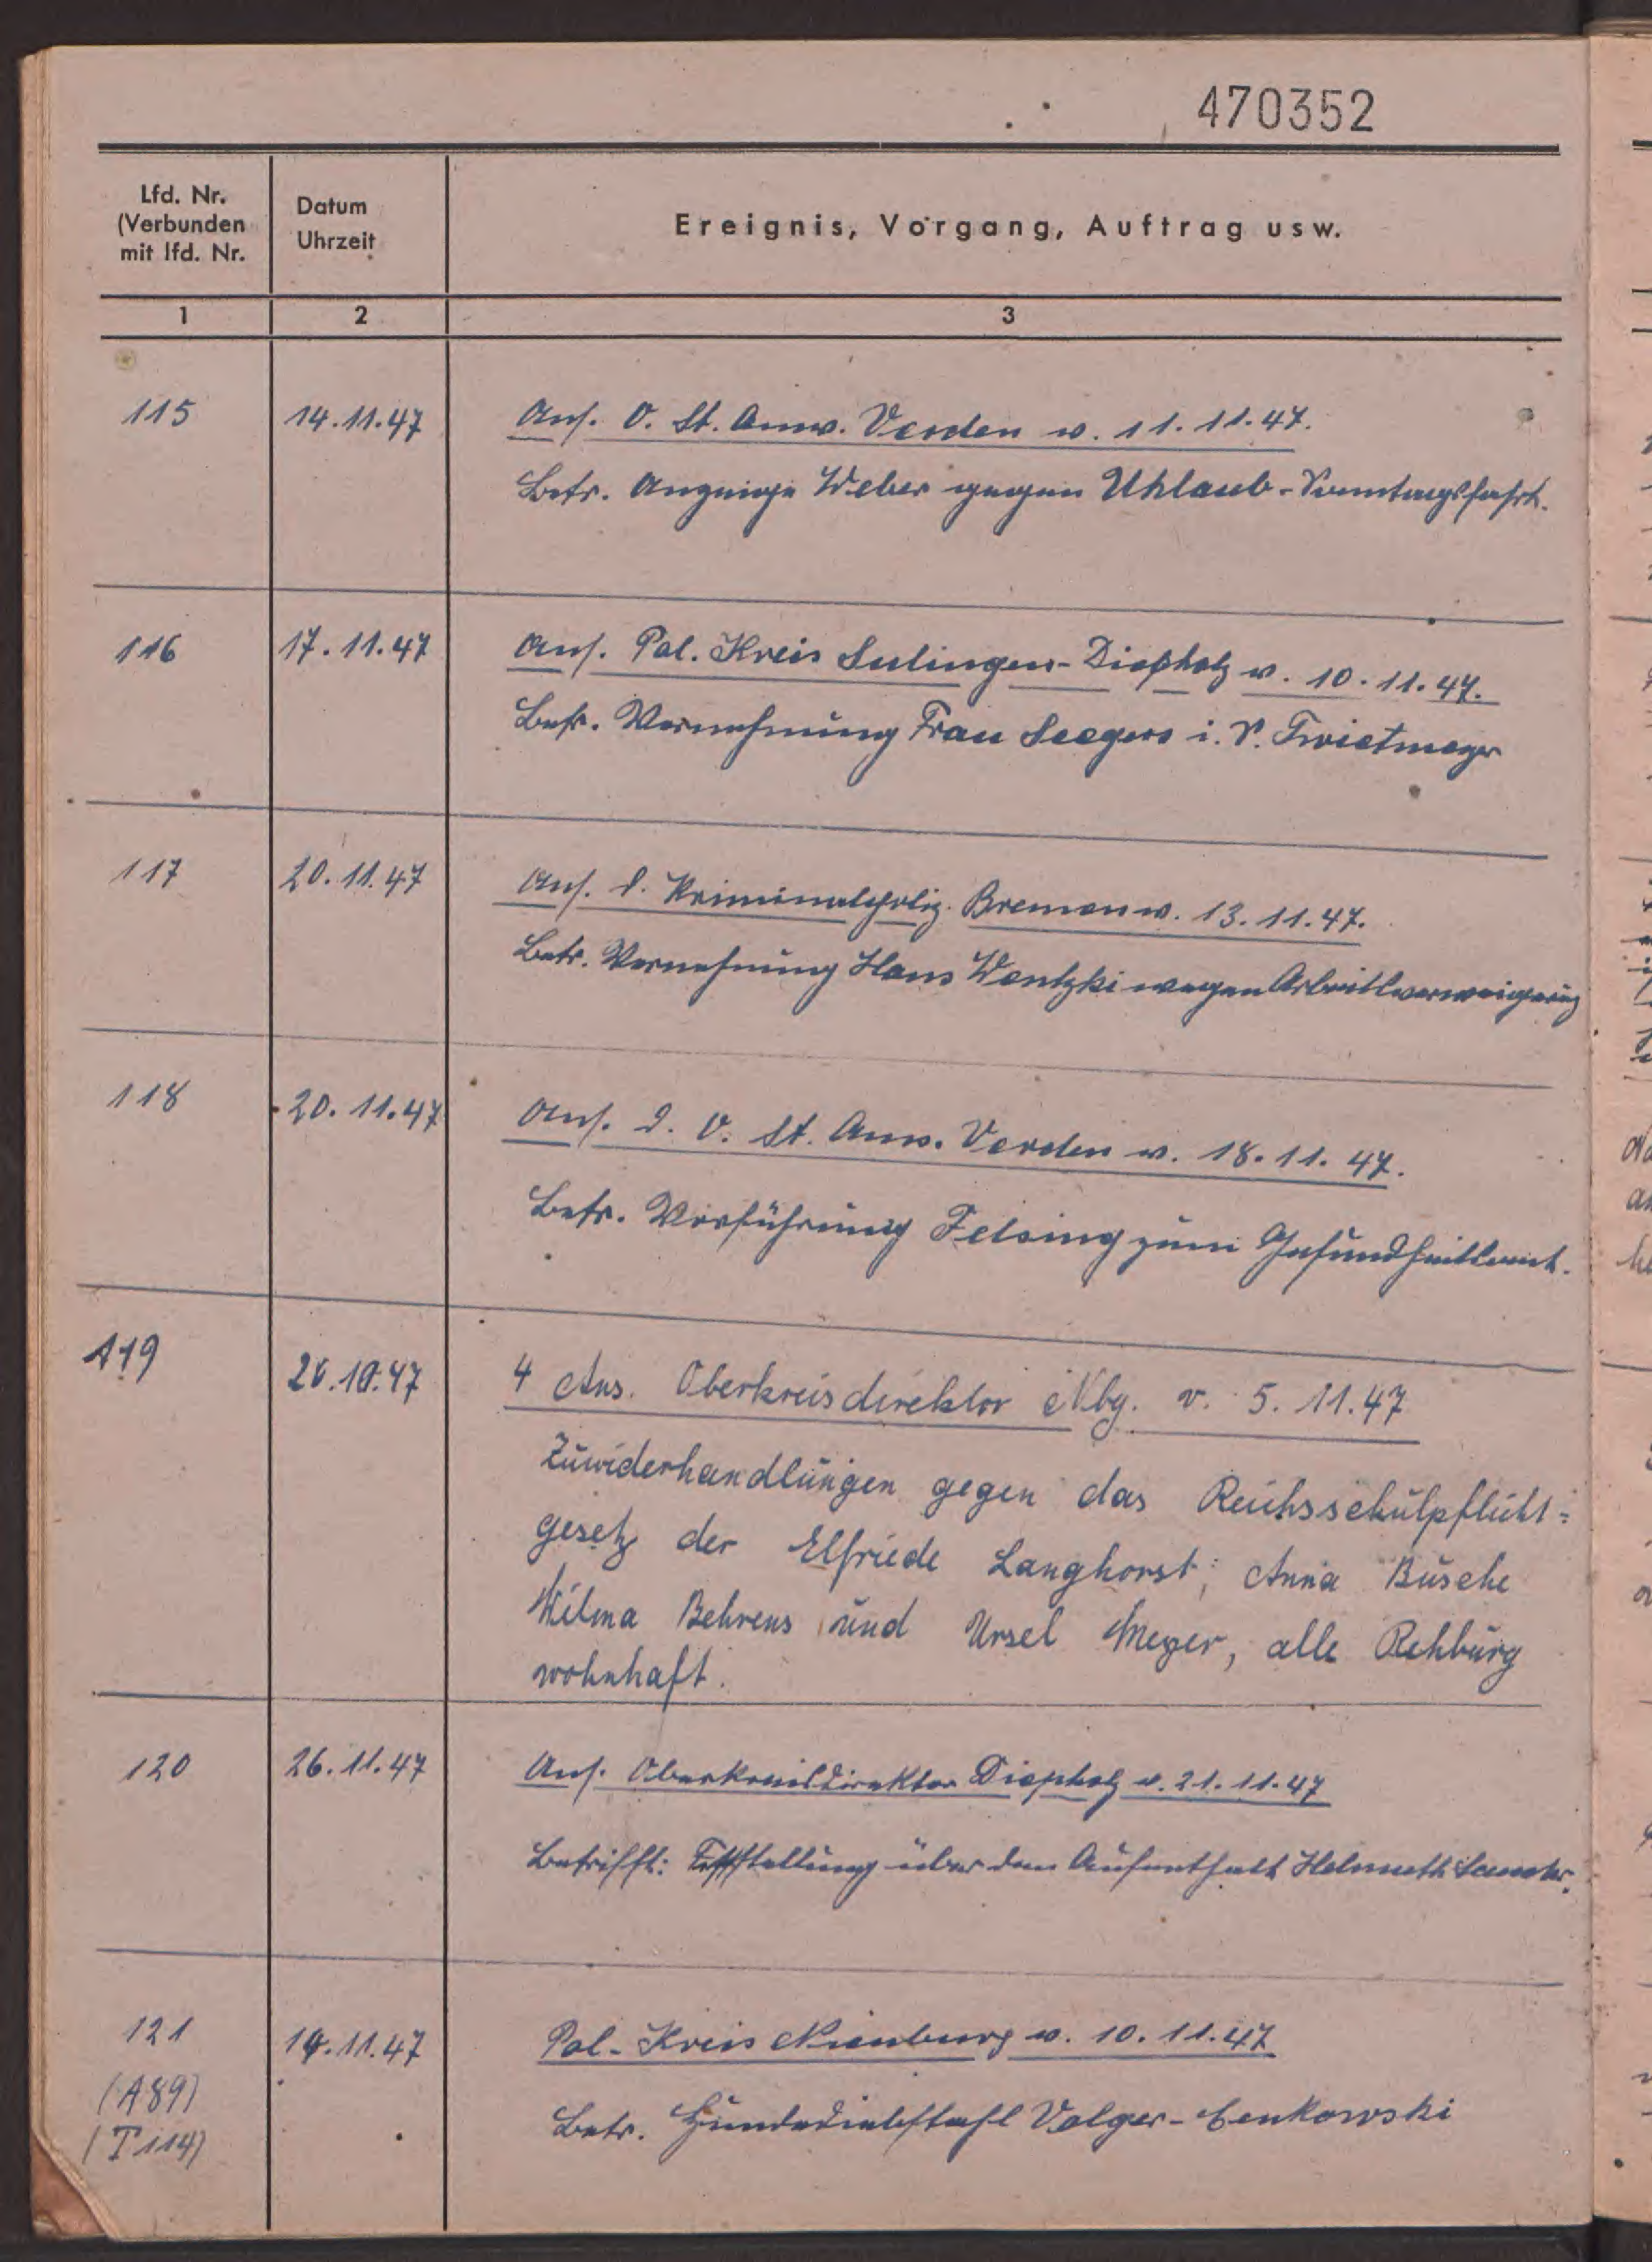 470352
Lfd. Nr.
(Verbunden
mit lfd. Nr.
Datum
Uhrzeit
Ereignis, Vorgang, Auftrag usw.
1
2
3
115
14.11.47
Ans. O. St. Anw. Verden v. 11.11.47.
Betr. Anzeige Weber gegen Uhlaub-Sonntagsfahrt.
116
17.11.47
Ans. Pol. Kreis Sulingen-Diepholz v. 10.11.47.
Betr. Vernehmung Frau Seegers i. S. Twietmeyer
117
20.11.47
Ans. d. Kriminalpoliz. Bremen v. 13.11.47.
Betr. Vernehmung Hans Wentzki wegen Arbeitsverweigerung
118
20.11.47
Ans. d. O. St. Anw. Verden v. 18.11.47.
Betr. Vorführung Felsing zum Gesundheitsamt.
119
4 Ans. Oberkreisdirektor Nbg. v. 5.11.47
Zuwiderhandlungen gegen das Reichsschulpflicht=
gesetz der Elfriede Langhorst, Anna Busche
Wilma Behrens und Ursel Meyer, alle Rehburg
wohnhaft.
120
26.11.47
Ans. Oberkreisdirektor Diepholz v. 21.11.47
Betrifft: Feststellung über den Aufenthalt Helmuth
121
(A89)
(T114)
14.11.47
Pol.-Kreis Nienburg v. 10.11.47
Betr. Hundediebstahl Volger-Cenkowski